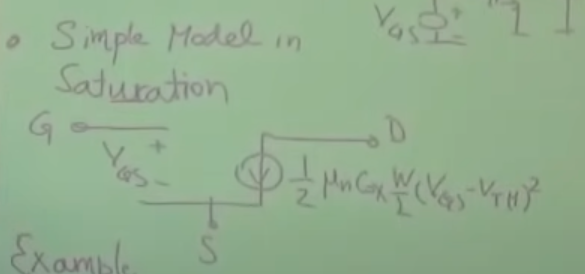 V_GS + -
• Simple Model in
Saturation
G
V_GS + -
D
1/2 μn Cox W/L (V_GS - V_TH)²
S
Example